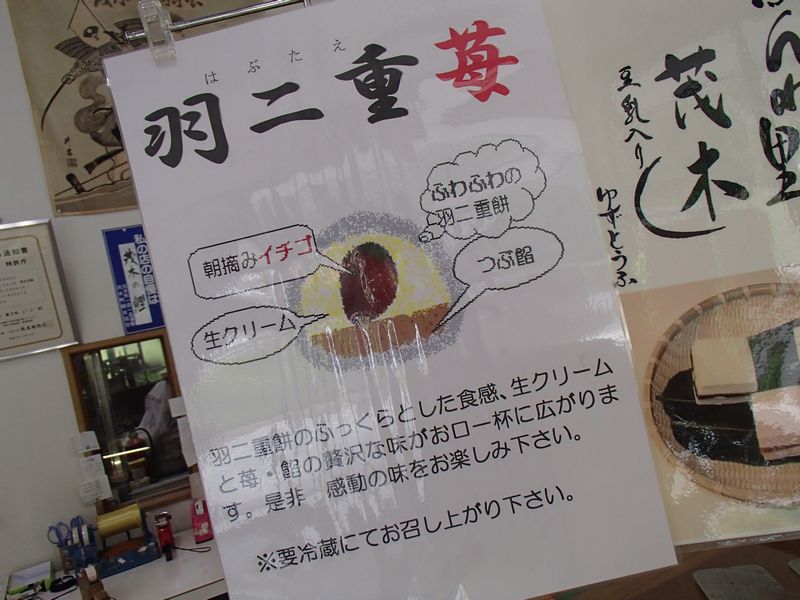 はぶたえ
羽二重苺
ふわふわの
羽二重餅
朝摘みイチゴ
つぶ餡
生クリーム
羽二重餅のふっくらとした食感、生クリーム
と苺・餡の贅沢な味がお口一杯に広がりま
す。是非　感動の味をお楽しみ下さい。
※要冷蔵にてお召し上がり下さい。
茂木
豆乳入り
ゆずとうふ
私の店の自慢は
特許庁